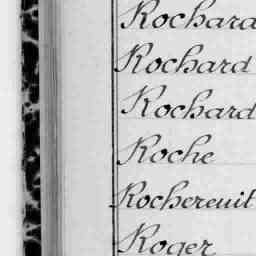 Rochard
Rochard
Rochard
Roche
Rochereuil
Roger